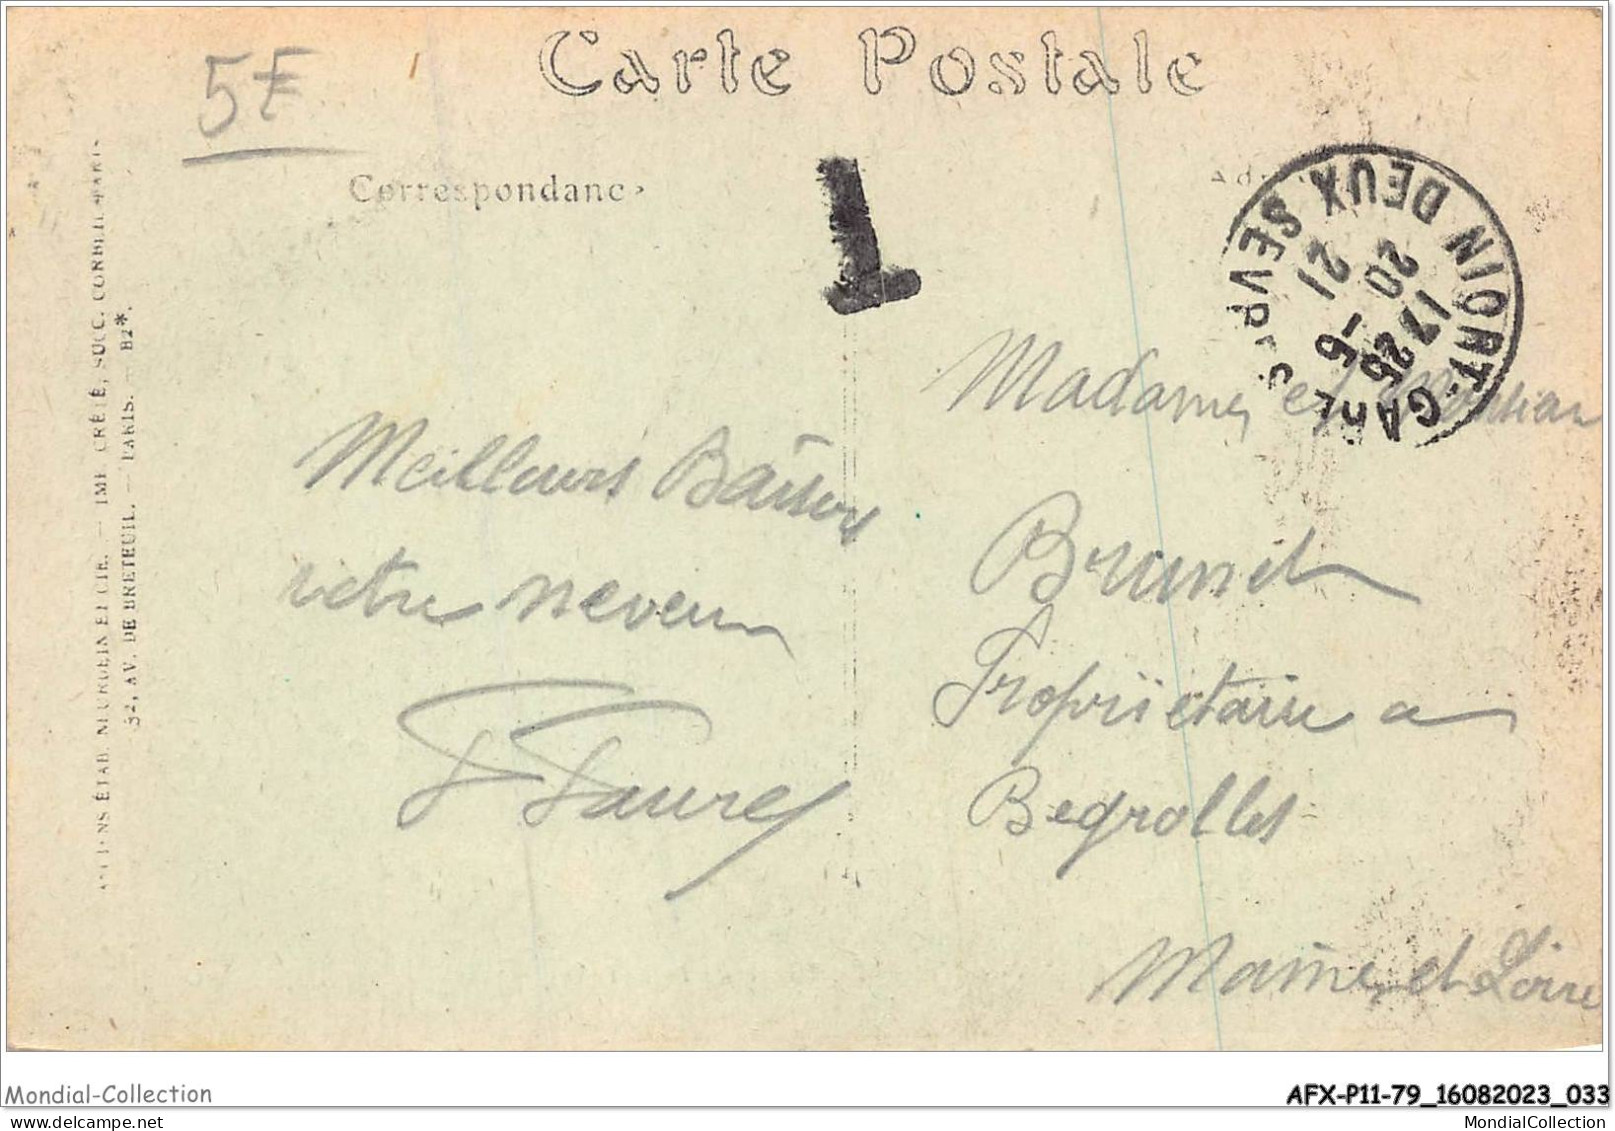 Carte Postale
5F
Correspondance
NIORT-GARE
DEUX SEVRES
17 25
20 -6
21
T
Madame et Monsieur
Meilleurs Baisers
votre neveu
F Faure
Brunet
Propriïetaire a
Begrolles
Maine et Loire
ANCIENS ÉTAB. NEURDEIN ET CIE. — IMP. CRÉTÉ, SUCC. CORBEIL-PARIS
52, AV. DE BRETEUIL. — PARIS. — B2*.
Mondial-Collection
AFX-P11-79_16082023_033
MondialCollection